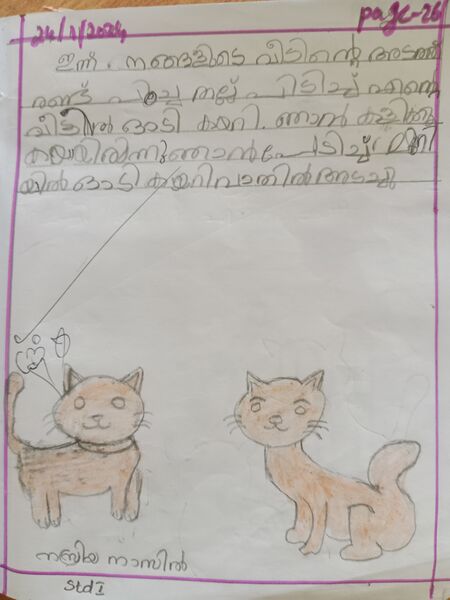 24/1/2024
page-26
ഇന്ന്. ഞങ്ങളുടെ വീടിന്റെ അടുത്ത്
രണ്ട് പൂച്ച തല്ല് പിടിച്ച് എന്റെ
വീട്ടിൽ ഓടി കയറി. ഞാൻ കളിക്കു
കയായിരുന്നു ഞാൻ പേടിച്ച് മുറി
യിൽ ഓടി കയറി വാതിൽ അടച്ചു
നബ്രിയ നാസിൽ
Std I